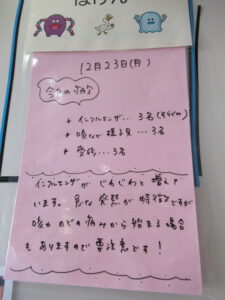 ほけん
12月23日(月)
今日の病欠
+ インフルエンザ... 3名
+ 咳など様子見... 3名
+ 受験... 3名
インフルエンザがじわじわと増えて
います。急な発熱が特徴ですが
咳やのどの痛みから始まる場合
もありますので要注意です!